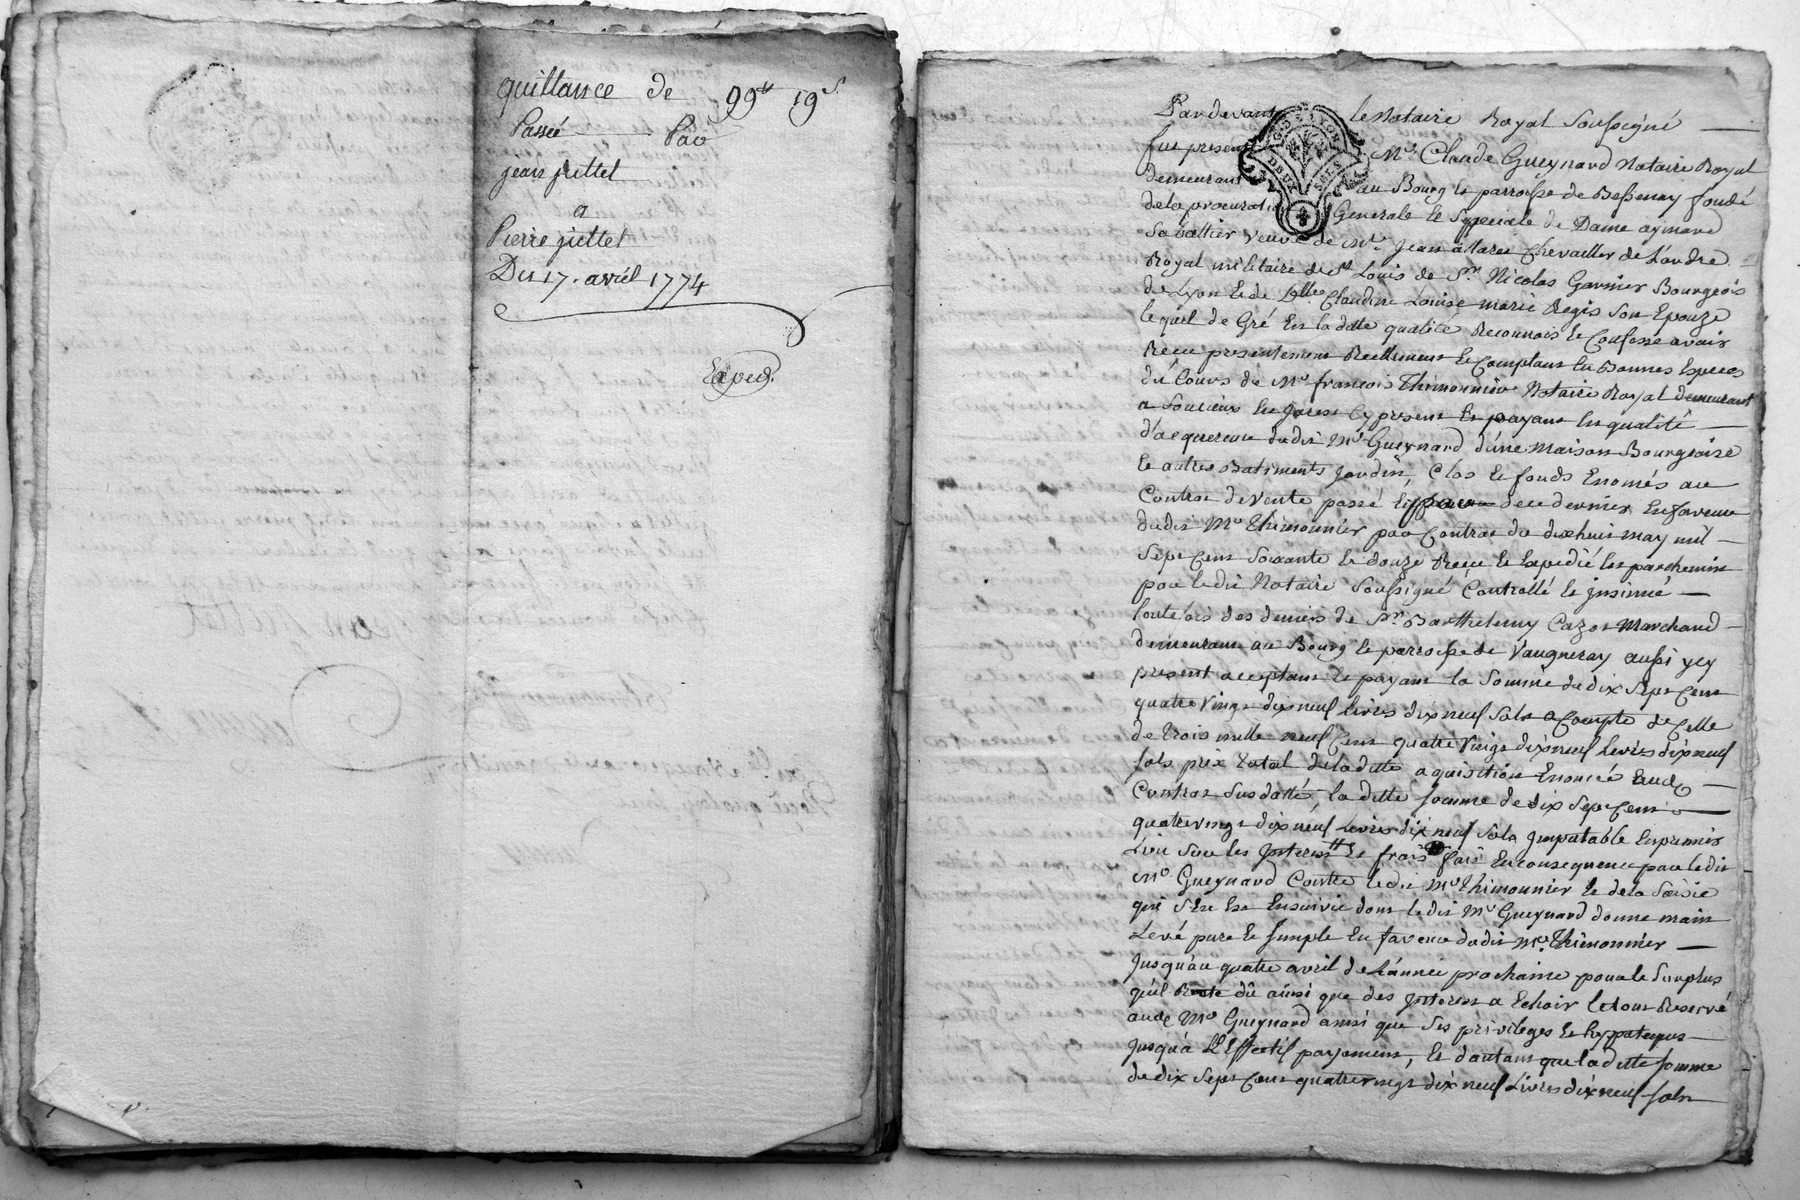 quittance de 99ᵗᵗ 19ˢ
Passée Par
jean juttet
a
Pierre juttet
Du 17. avril 1774
Exped.
G. DE LYON
DEUX SOLS
Pardevant le Notaire Royal Soussigné
fut present Mᵉ Claude Gueynard Notaire Royal
demeurant au Bourg et parroisse de Bessenay fondé
de la procuration Generale et Speciale de Dame aymard
Sabattier veuve de Mʳ jean Chevaillier de L'ordre
Royal militaire de Sᵗ Louis de Sʳ Nicolas Garnier Bourgeois
de Lyon et de Dˡˡᵉ Claudine Louise marie Regis Son Epouze
lequel de Gré en la ditte qualité Reconnois et Confesse avoir
Receu presentement Reellement et Comptant en Bonnes Especes
du Cours de Mᵉ françois Thimonnier Notaire Royal demeurant
a Soucieu en Jarest cy present et payant en qualité
d'acquereur dudit Mᵉ Gueynard d'une Maison Bourgeoise
et autres Batiments jardin, Clos et fonds Enoncés au
Contrat de Vente passé par ce dernier en faveur
dudit Mᵉ Thimonnier par Contrat du dixhuit may mil
Sept Cent Soixante et douze Receu et Expedié en parchemin
par ledit Notaire Soussigné Controllé et jnsinué
toutefois des deniers de Sʳ Barthelemy Cazot Marchand
demeurant au Bourg et parroisse de Vaugneray aussi ycy
present acceptant et payant la Somme de dix Sept Cent
quatre Vingt dix neuf Livres dix neuf Sols a Compte de Celle
de trois mille neuf Cent quatre Vingt dix neuf Livres dix neuf
Sols prix total de la ditte aquisition Enoncée audᵗ
Contrat Susdatté, la ditte Somme de dix Sept Cent
quatre vingt dix neuf Livres dix neuf Sols jmputable En premier
Lieu Sur les jnterest et frais fais En consequence par ledit
Mᵉ Gueynard Contre ledit Mᵉ Thimonnier et de la Saisie
qui S'En Est Ensuivie dont ledit Mᵉ Gueynard donne main
Levé pure et Simple En faveur dudit Mᵉ Thimonnier
jusqu'au quatre avril de L'année prochaine pour le Surplus
qu'il Reste dû ainsi que des jnterest a Echoir le tout Reservé
audᵗ Mᵉ Gueynard ainsi que Ses privileges et hypoteques
jusqu'a L'Effectif payement, et d'autant que la ditte Somme
de dix Sept Cent quatre vingt dix neuf Livres dix neuf Sols